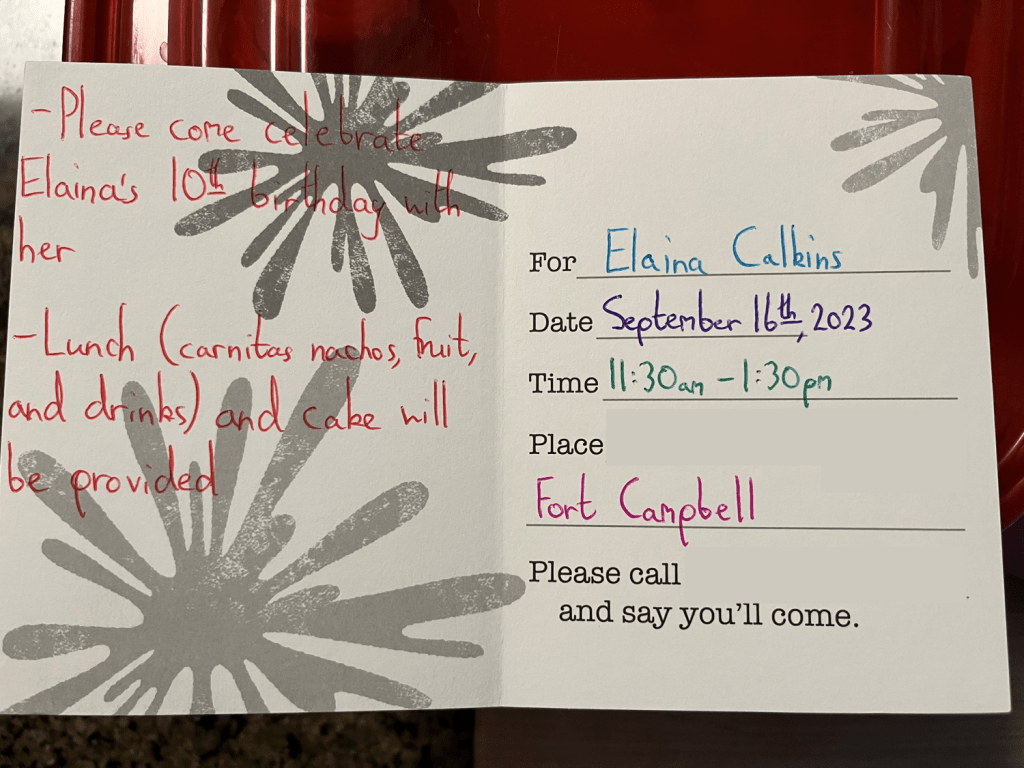 -Please come celebrate
Elaina's 10th birthday with
her
-Lunch (carnitas nachos, fruit,
and drinks) and cake will
be provided
For Elaina Calkins
Date September 16th, 2023
Time 11:30am - 1:30pm
Place
Fort Campbell
Please call
and say you'll come.